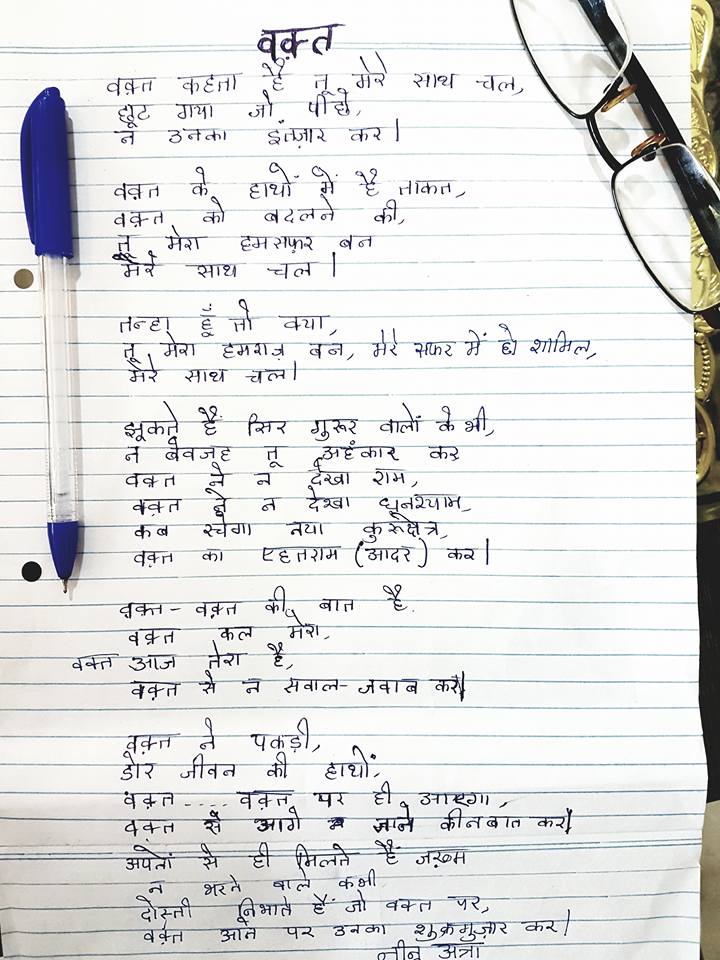 वक़्त
वक़्त कहता है तू मेरे साथ चल,
छूट गया जो पीछे,
न उनका इंतज़ार कर।
वक़्त के हाथों में है ताकत,
वक़्त को बदलने की,
तू मेरा हमसफ़र बन
मेरे साथ चल।
तन्हा हूँ तो क्या,
तू मेरा हमराज़ बन, मेरे सफर में हो शामिल,
मेरे साथ चल।
झूकते हैं सिर गुरूर वालों के भी,
न बेवजह तू अहंकार कर
वक़्त ने न देखा राम,
वक़्त ने न देखा घनश्याम,
कब रचेगा नया कुरूक्षेत्र,
वक़्त का एहतराम (आदर) कर।
वक़्त-वक़्त की बात है
वक़्त कल मेरा,
वक्त आज तेरा है,
वक़्त से न सवाल-जवाब कर।
वक़्त ने पकड़ी,
डोर जीवन की हाथों,
वक़्त .... वक़्त पर ही आएगा,
वक़्त से आगे न जाने की न बात कर।
अपनों से ही मिलते हैं जख़्म
न भरते वाले कभी
दोस्ती निभाते हैं जो वक़्त पर,
वक़्त आने पर उनका शुक्रगुज़ार कर।